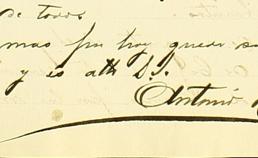 de todos
mas por hoy queda su
y es atto S.S.
Antonio